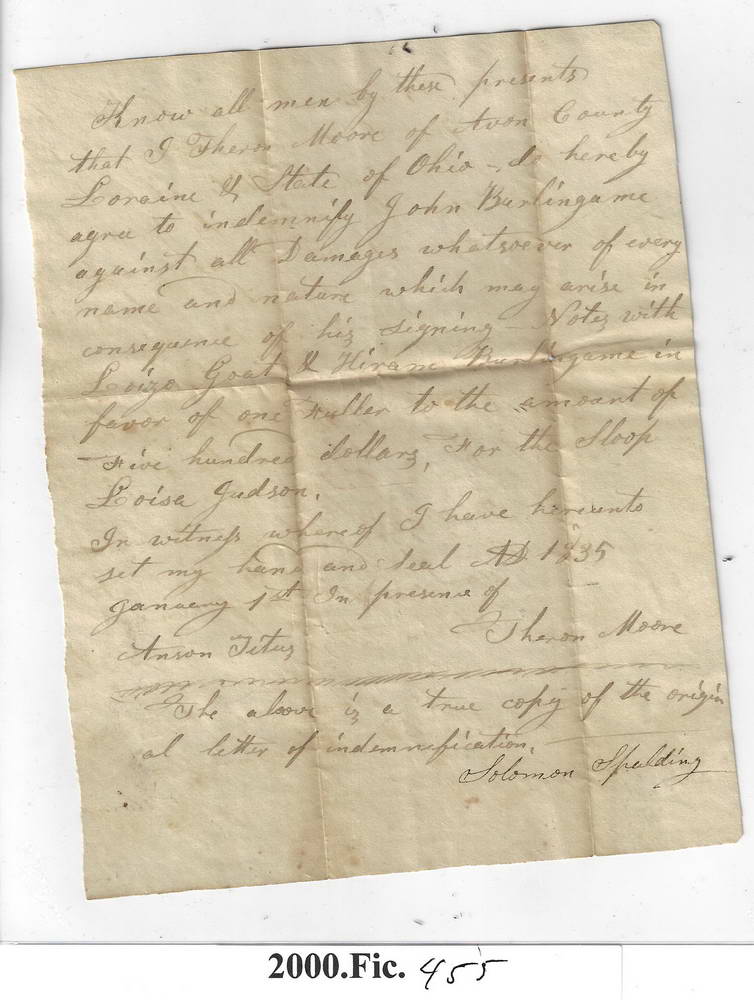 Know all men by these presents
that I Theron Moore of Avon County
Loraine & State of Ohio - do hereby
agree to indemnify John Burlingame
against all Damages whatsoever of every
name and nature which may arise in
consequence of his signing Notes with
Loizo Goat & Hiram Burlingame in
favor of one Fuller to the amount of
Five hundred dollars, For the Sloop
Loisa Judson.
In witness whereof I have hereunto
set my hand and seal AD. 1835
January 1st In presence of
Anson Titus Theron Moore
The above is a true copy of the origin
al letter of indemnefication.
Solomon Spalding
2000.Fic. 455